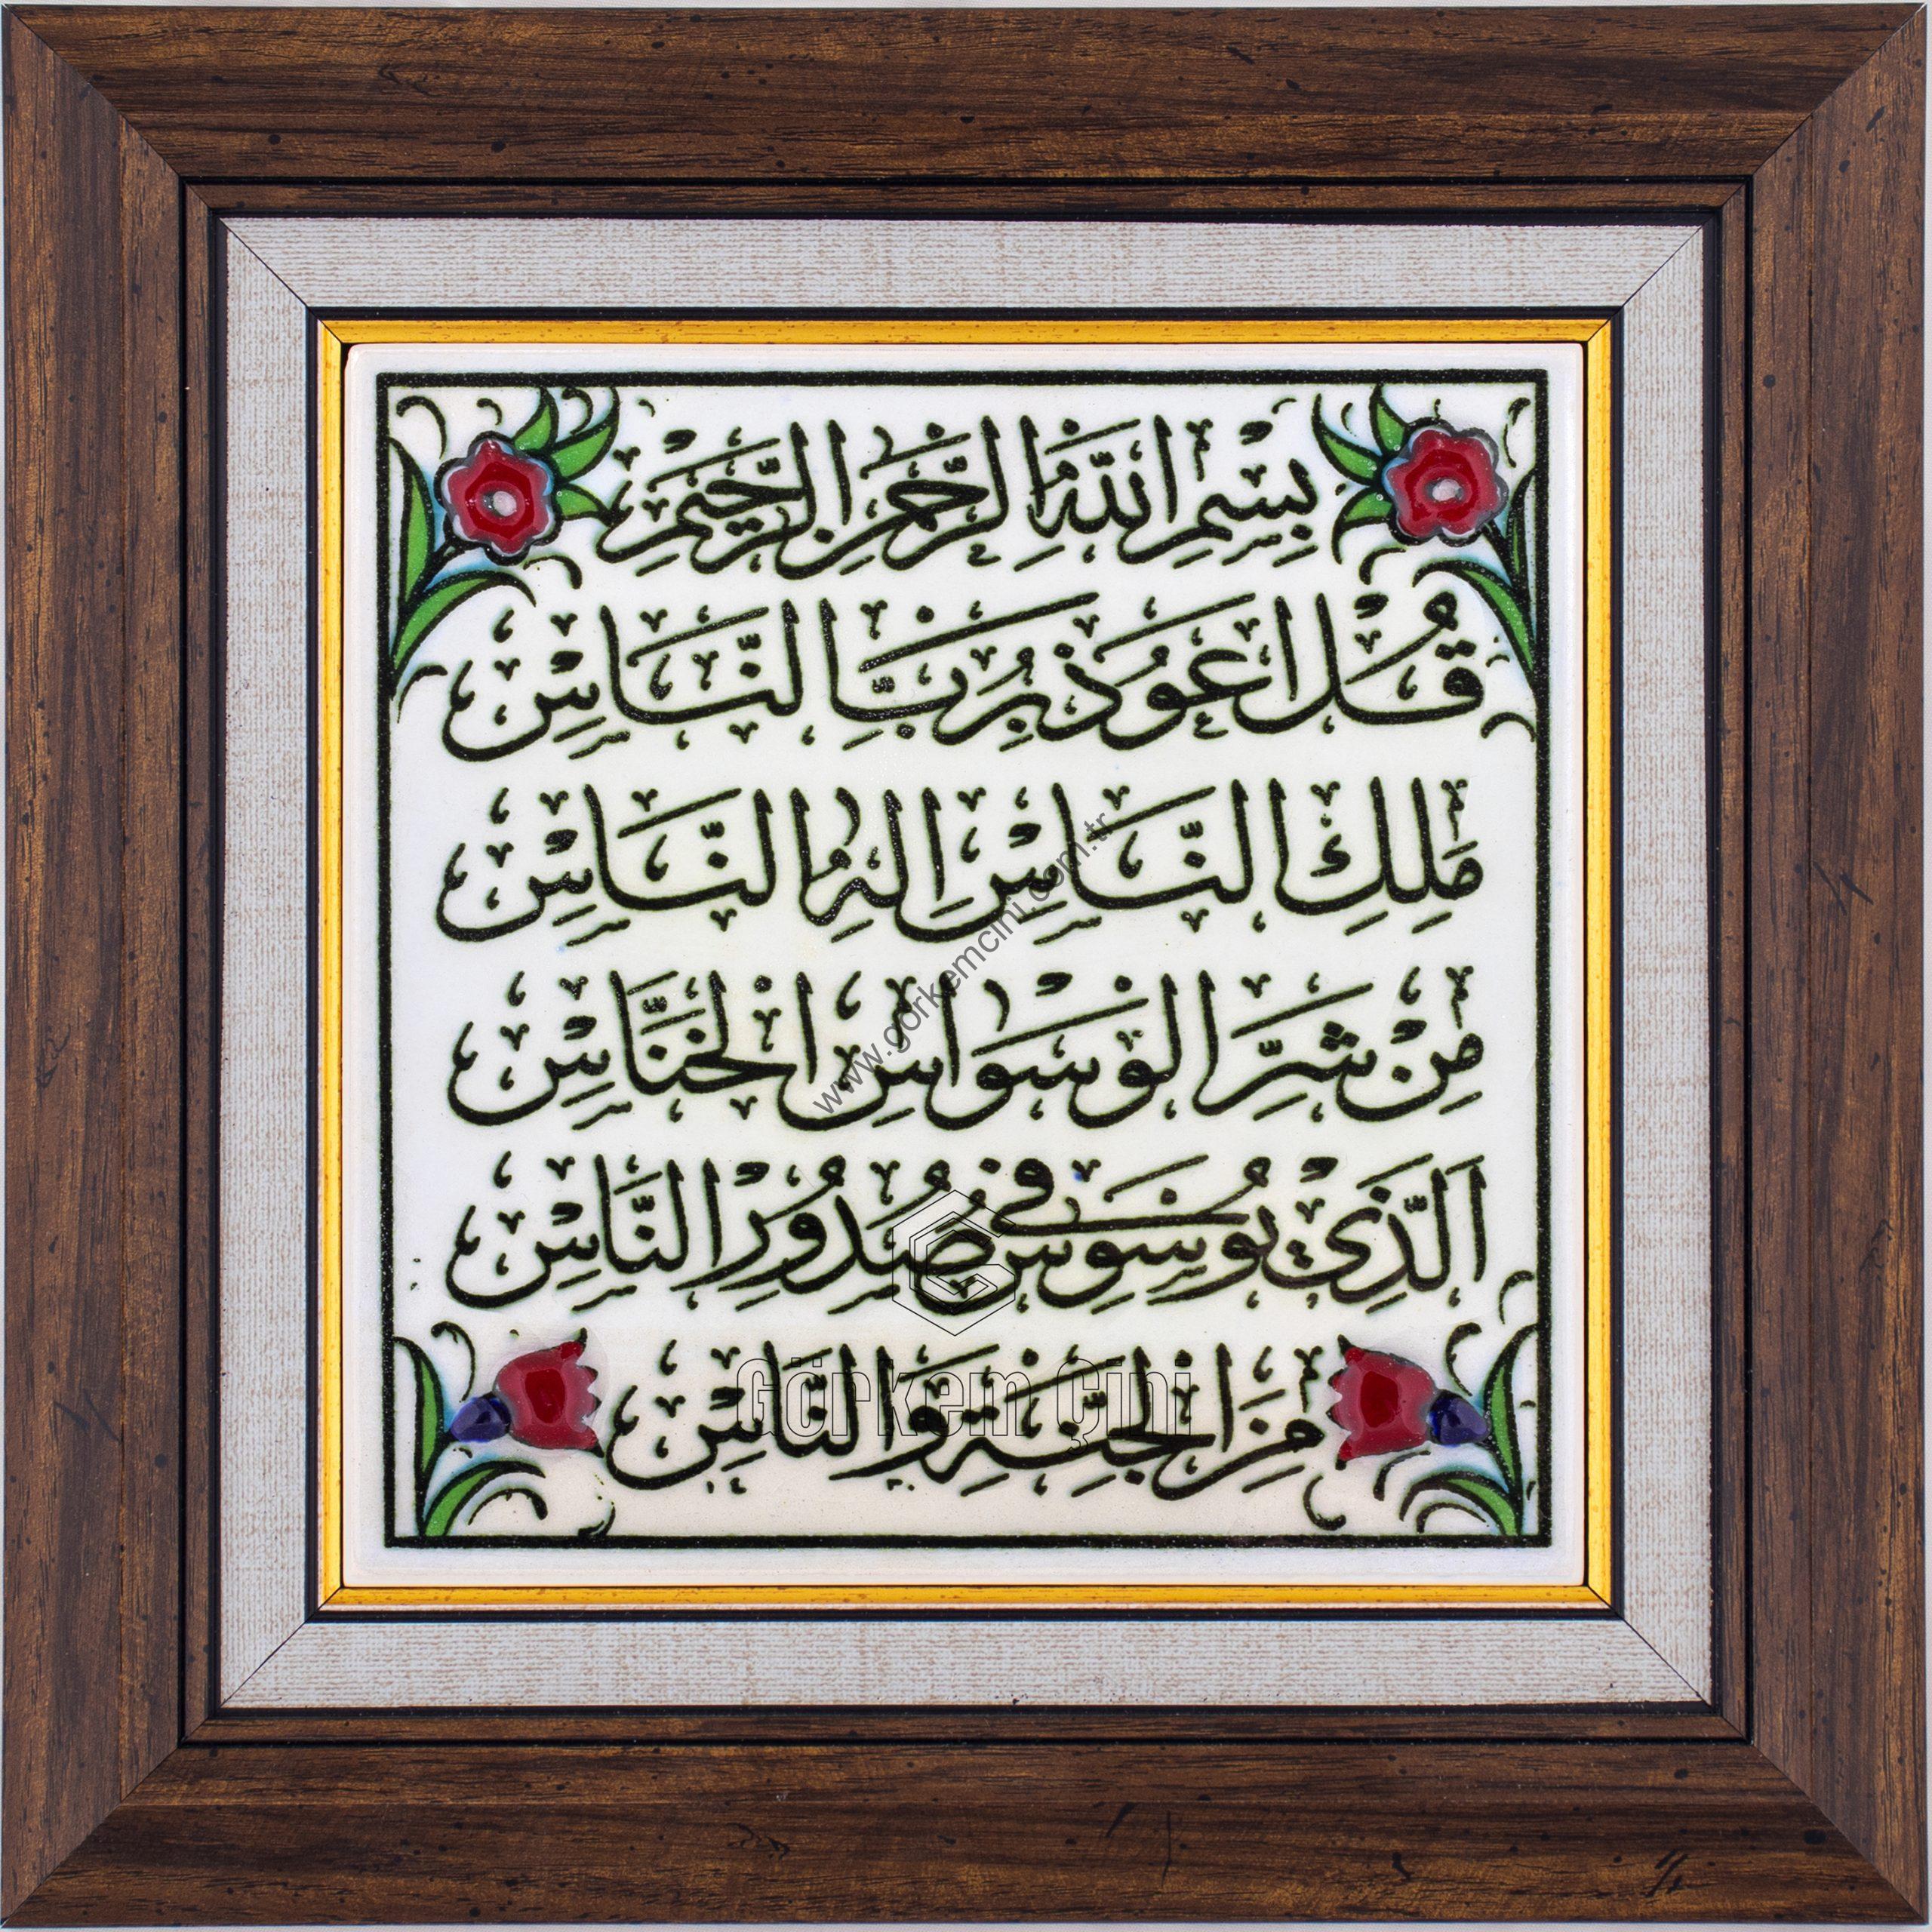 بِسْمِ اللّٰهِ الرَّحْمٰنِ الرَّحِيمِ
قُلْ اَعُوذُ بِرَبِّ النَّاسِ
مَلِكِ النَّاسِ اِلٰهِ النَّاسِ
مِنْ شَرِّ الْوَسْوَاسِ الْخَنَّاسِ
اَلَّذِي يُوَسْوِسُ فِي صُدُورِ النَّاسِ
مِنَ الْجِنَّةِ وَالنَّاسِ
www.gorkemcini.com.tr
Görkem Çini